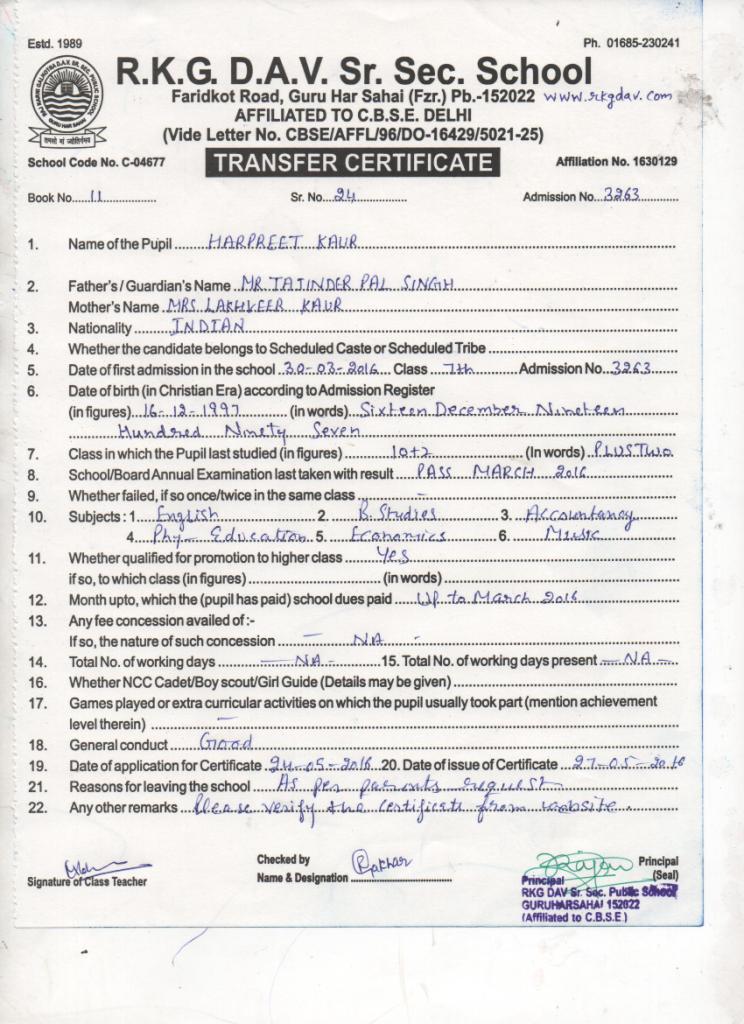 Estd. 1989 Ph. 01685-230241
R.K.G. D.A.V. Sr. Sec. School
Faridkot Road, Guru Har Sahai (Fzr.) Pb.-152022 www.rkgdav.com
AFFILIATED TO C.B.S.E. DELHI
(Vide Letter No. CBSE/AFFL/96/DO-16429/5021-25)
School Code No. C-04677 TRANSFER CERTIFICATE Affiliation No. 1630129
Book No. 11 Sr. No. 24 Admission No. 3263
1. Name of the Pupil HARPREET KAUR
2. Father's / Guardian's Name MR. TAJINDER PAL SINGH
Mother's Name MRS LAKHVEER KAUR
3. Nationality INDIAN
4. Whether the candidate belongs to Scheduled Caste or Scheduled Tribe
5. Date of first admission in the school 30-03-2016 Class 7th Admission No. 3263
6. Date of birth (in Christian Era) according to Admission Register
(in figures) 16-12-1997 (in words) Sixteen December Nineteen
Hundred Ninety Seven
7. Class in which the Pupil last studied (in figures) 10+2 (In words) PLUS TWO
8. School/Board Annual Examination last taken with result PASS MARCH 2016
9. Whether failed, if so once/twice in the same class -
10. Subjects : 1. English 2. B. Studies 3. Accountancy
4. Phy- Education 5. Economics 6. Music
11. Whether qualified for promotion to higher class Yes
if so, to which class (in figures) (in words)
12. Month upto, which the (pupil has paid) school dues paid Up to March 2016
13. Any fee concession availed of :-
If so, the nature of such concession - NA -
14. Total No. of working days - NA - 15. Total No. of working days present - NA -
16. Whether NCC Cadet/Boy scout/Girl Guide (Details may be given)
17. Games played or extra curricular activities on which the pupil usually took part (mention achievement
level therein) -
18. General conduct Good
19. Date of application for Certificate 24-05-2016 20. Date of issue of Certificate 27-05-2016
21. Reasons for leaving the school As per parents request
22. Any other remarks Please verify the certificate from website.
Checked by Principal
Signature of Class Teacher Name & Designation (Seal)
Principal
RKG DAV Sr. Sec. Public School
GURUHARSAHAI 152022
(Affiliated to C.B.S.E.)